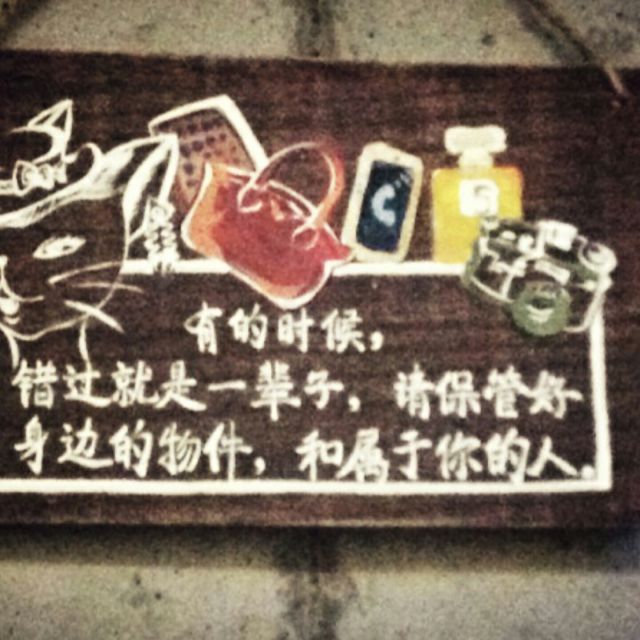 有的时候，
错过就是一辈子，请保管好
身边的物件，和属于你的人。